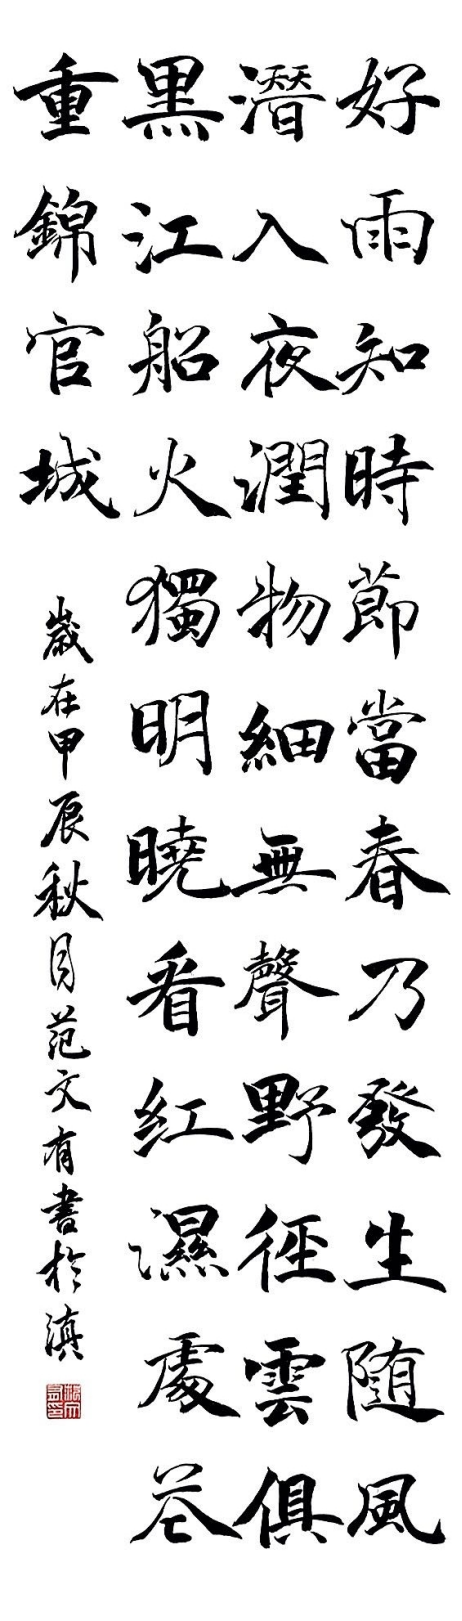 好雨知時節當春乃發生随風
潛入夜潤物細無聲野徑雲俱
黑江船火獨明曉看紅濕處花
重錦官城
歲在甲辰秋月范文有書於滇